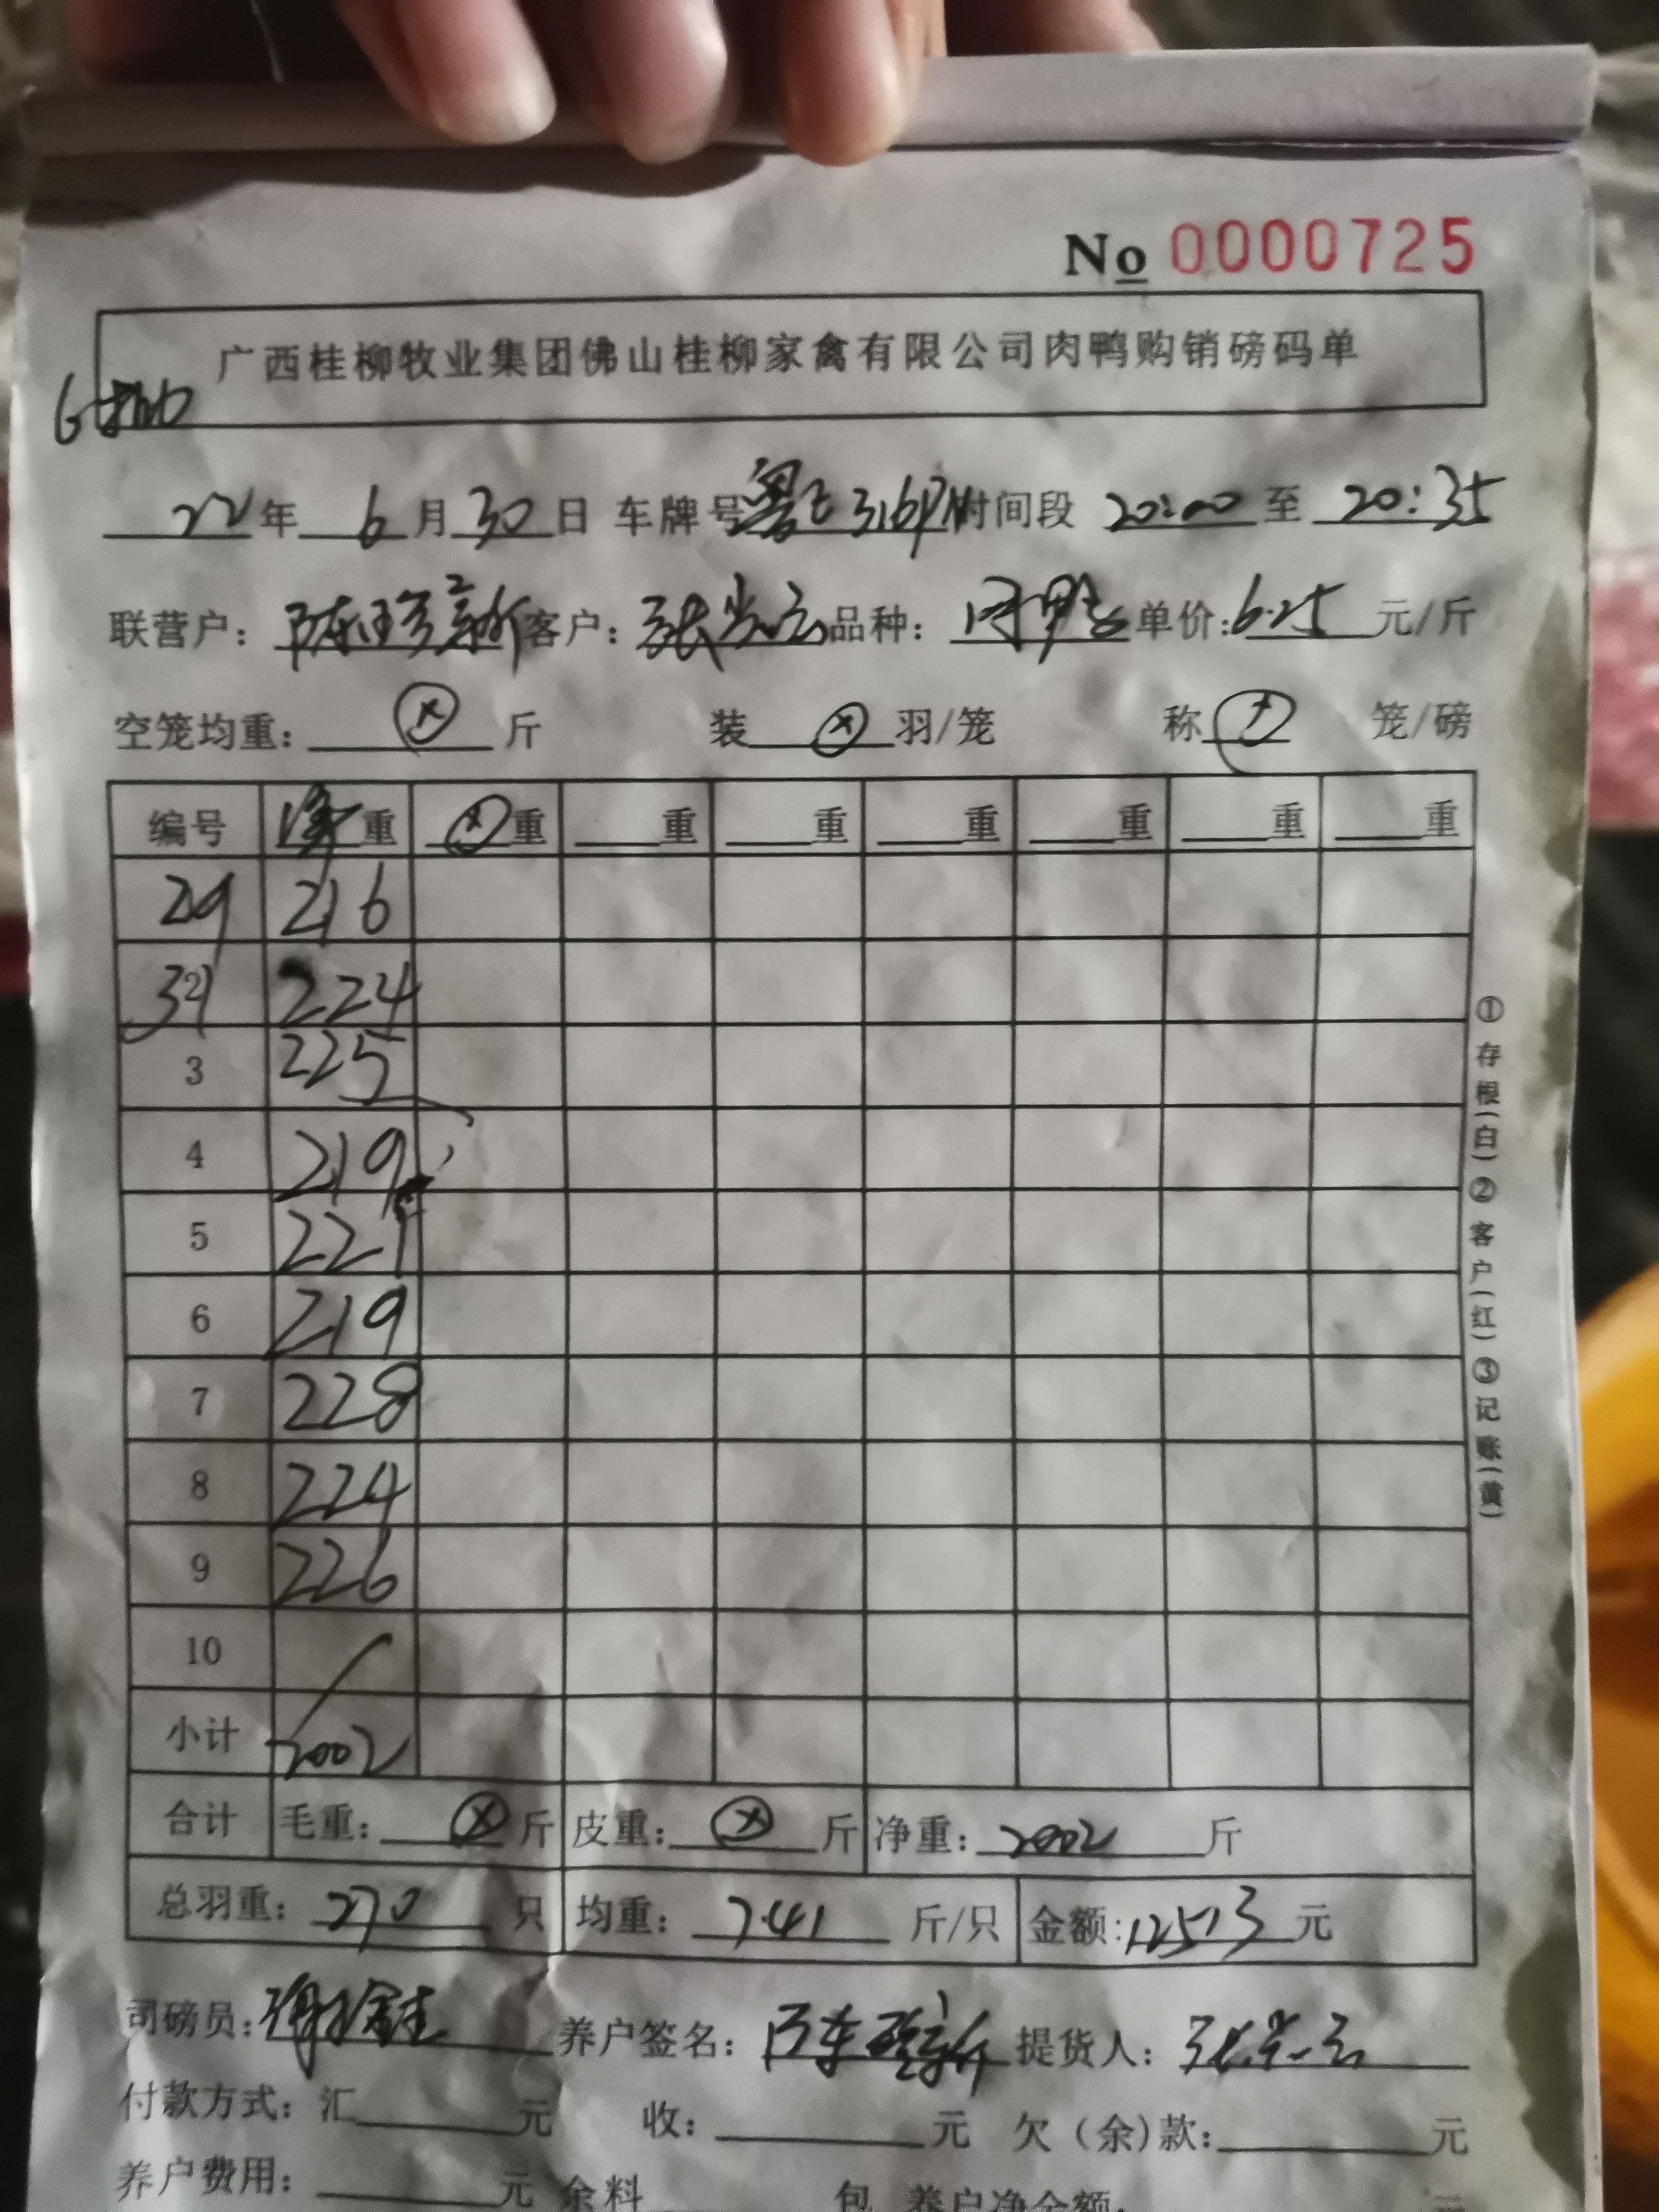 No 0000725
广西桂柳牧业集团佛山桂柳家禽有限公司肉鸭购销磅码单
22年 6月30日 车牌号粤 时间段 20:00至 20:35
联营户: 陈 新 客户: 张光云 品种: 单价:6.25 元/斤
空笼均重: ⊗ 斤 装 ⊗ 羽/笼 称 笼/磅
编号 净重 ⊗重 重 重 重 重 重 重
29 216
224
3 225
4 219
5 221
6 219
7 228
8 224
9 226
10
小计 2002
合计 毛重: ⊗ 斤 皮重: ⊗ 斤 净重: 2002 斤
总羽重: 270 只 均重: 7.41 斤/只 金额:12513元
司磅员: 养户签名: 陈 新 提货人: 张光云
付款方式: 汇 元 收: 元 欠(余)款: 元
养户费用: 元 余料 包 养户净金额: 元
①存根(白)②客户(红)③记账(黄)